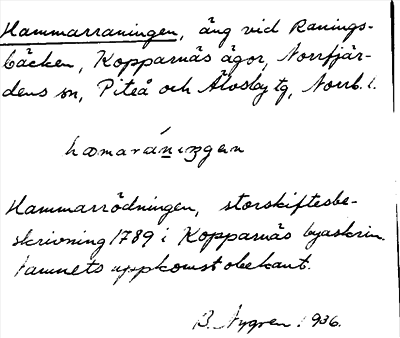 Hammarraningen, äng vid Ranings-
bäcken, Kopparnäs ägor, Norrfjär-
dens sn, Piteå och Älvsby tg, Norrb. l.
hamaráningen
Hammarrödningen, storskiftesbe-
skrivning 1789 i Kopparnäs byaskrin.
Namnets uppkomst obekant.
B. Nygren 1936.